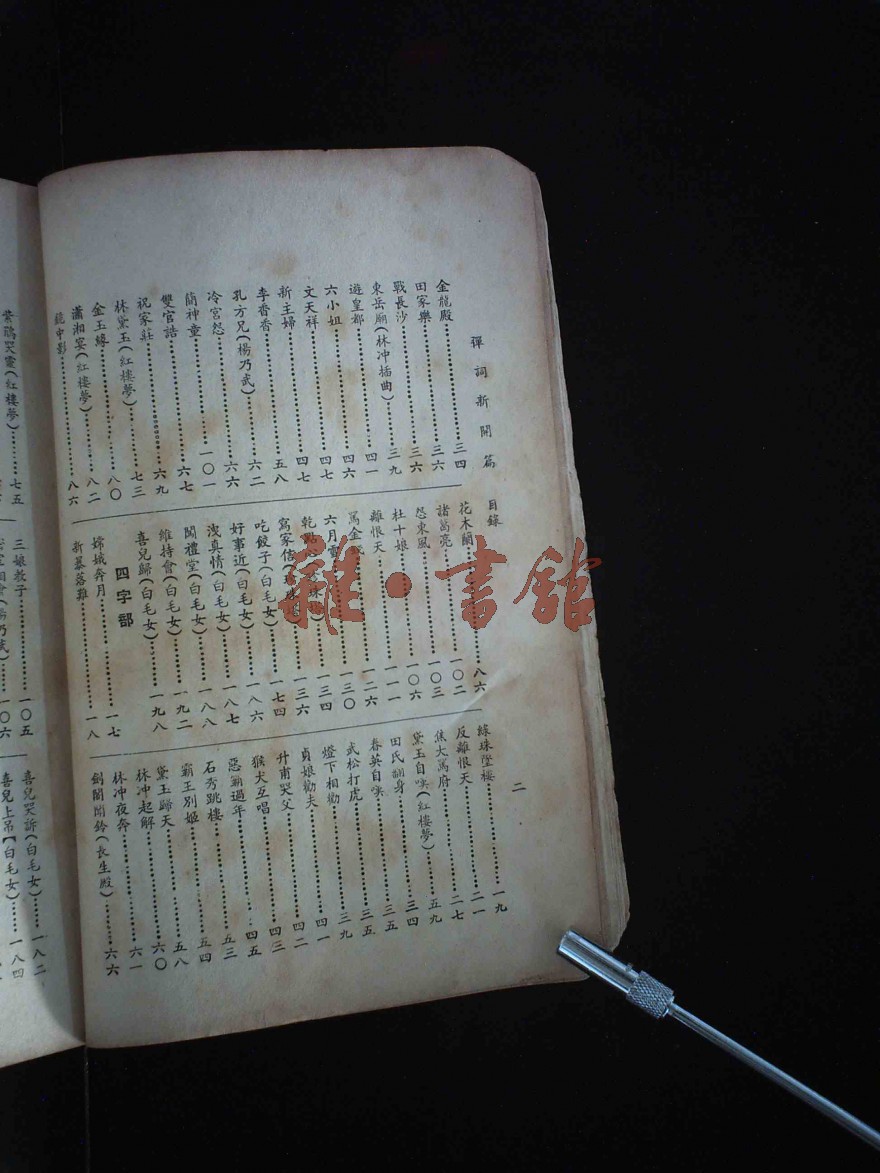 彈詞新開篇
目錄
二
金龍殿 三四
田家樂 三六
戰長沙 三九
東岳廟(林冲插曲) 四一
遊皇都 四六
六小姐 四七
文天祥 四七
新主婦 五八
李香香 六二
孔方兄(楊乃武) 六六
冷宮怨 一〇一
藺神童 六七
雙官誥 六九
祝家莊 七三
林黛玉(紅樓夢) 八〇
金玉緣 八二
瀟湘宴(紅樓夢)
鏡中影 八六
花木蘭 八六
諸葛亮 一〇二
怨東風 一〇三
杜十娘 一〇六
離恨天 一一一
罵金 一二六
六月雪 一三〇
乾點 珠塔 一三四
寫家信 一三六
吃餃子(白毛女) 一七四
好事近(白毛女) 一八六
洩真情(白毛女) 一八七
鬧禮堂(白毛女) 一八八
維持會(白毛女) 一九二
喜兒歸(白毛女) 一九八
四字部
嫦娥奔月 一七
新暴落難 一八
綠珠墜樓 一九
反離恨天 二一
焦大罵府 二七
黛玉自嘆(紅樓夢) 五九
田氏翻身 三四
春英自嘆 三五
武松打虎 三五
燈下相勸 三九
貞娘勸夫 四一
升甫哭父 四二
猴犬互唱 四三
惡霸過年 四五
石秀跳樓 五三
霸王別姬 五四
黛玉歸天 五八
林冲起解 六〇
林冲夜奔 六一
劍閣聞鈴(長生殿) 六六
紫鵑哭靈(紅樓夢) 七五
三娘教子 一〇五
(楊乃武) 一〇六
喜兒哭訴(白毛女) 一八二
喜兒上吊(白毛女) 一八四
雜·書館